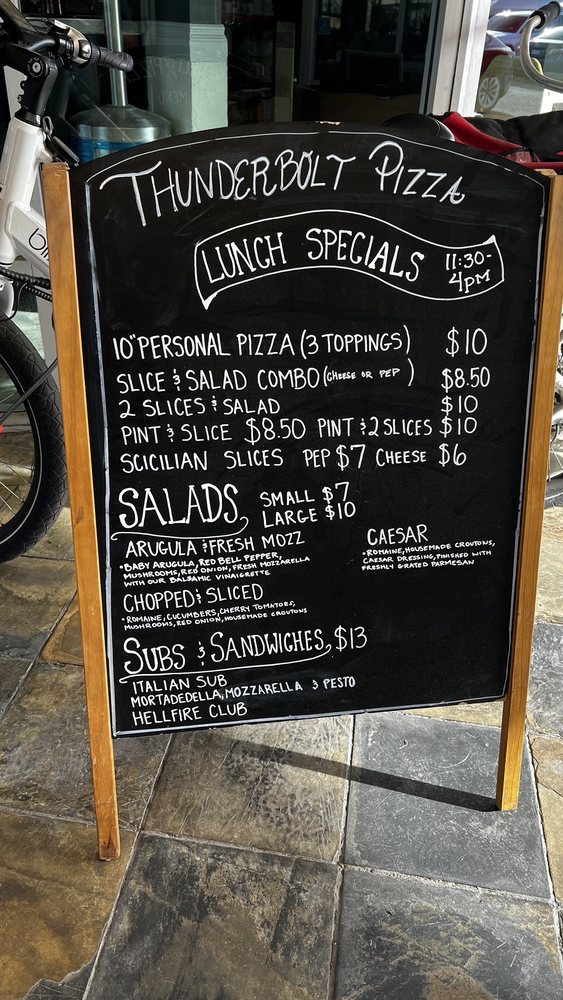 THUNDERBOLT PIZZA
LUNCH SPECIALS 11:30-
4PM
10" PERSONAL PIZZA (3 TOPPINGS) $10
SLICE & SALAD COMBO (CHEESE OR PEP) $8.50
2 SLICES & SALAD $10
PINT & SLICE $8.50 PINT & 2 SLICES $10
SCICILIAN SLICES PEP $7 CHEESE $6
SALADS SMALL $7
LARGE $10
ARUGULA & FRESH MOZZ
•BABY ARUGULA, RED BELL PEPPER,
MUSHROOMS, RED ONION, FRESH MOZZARELLA
WITH OUR BALSAMIC VINAIGRETTE
CAESAR
•ROMAINE, HOUSEMADE CROUTONS,
CAESAR DRESSING, FINISHED WITH
FRESHLY GRATED PARMESAN
CHOPPED & SLICED
•ROMAINE, CUCUMBERS, CHERRY TOMATOES,
MUSHROOMS, RED ONION, HOUSEMADE CROUTONS
SUBS & SANDWICHES $13
ITALIAN SUB
MORTADEDELLA, MOZZARELLA & PESTO
HELLFIRE CLUB